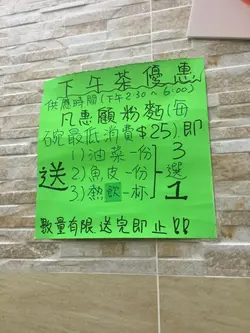 下午茶優惠
供應時間(下午2:30~6:00)
凡惠顧粉麵(每
碗最低消費$25)即
送
1)油菜一份
2)魚皮一份
3)熱飲一杯
3
選
1
數量有限,送完即止!!